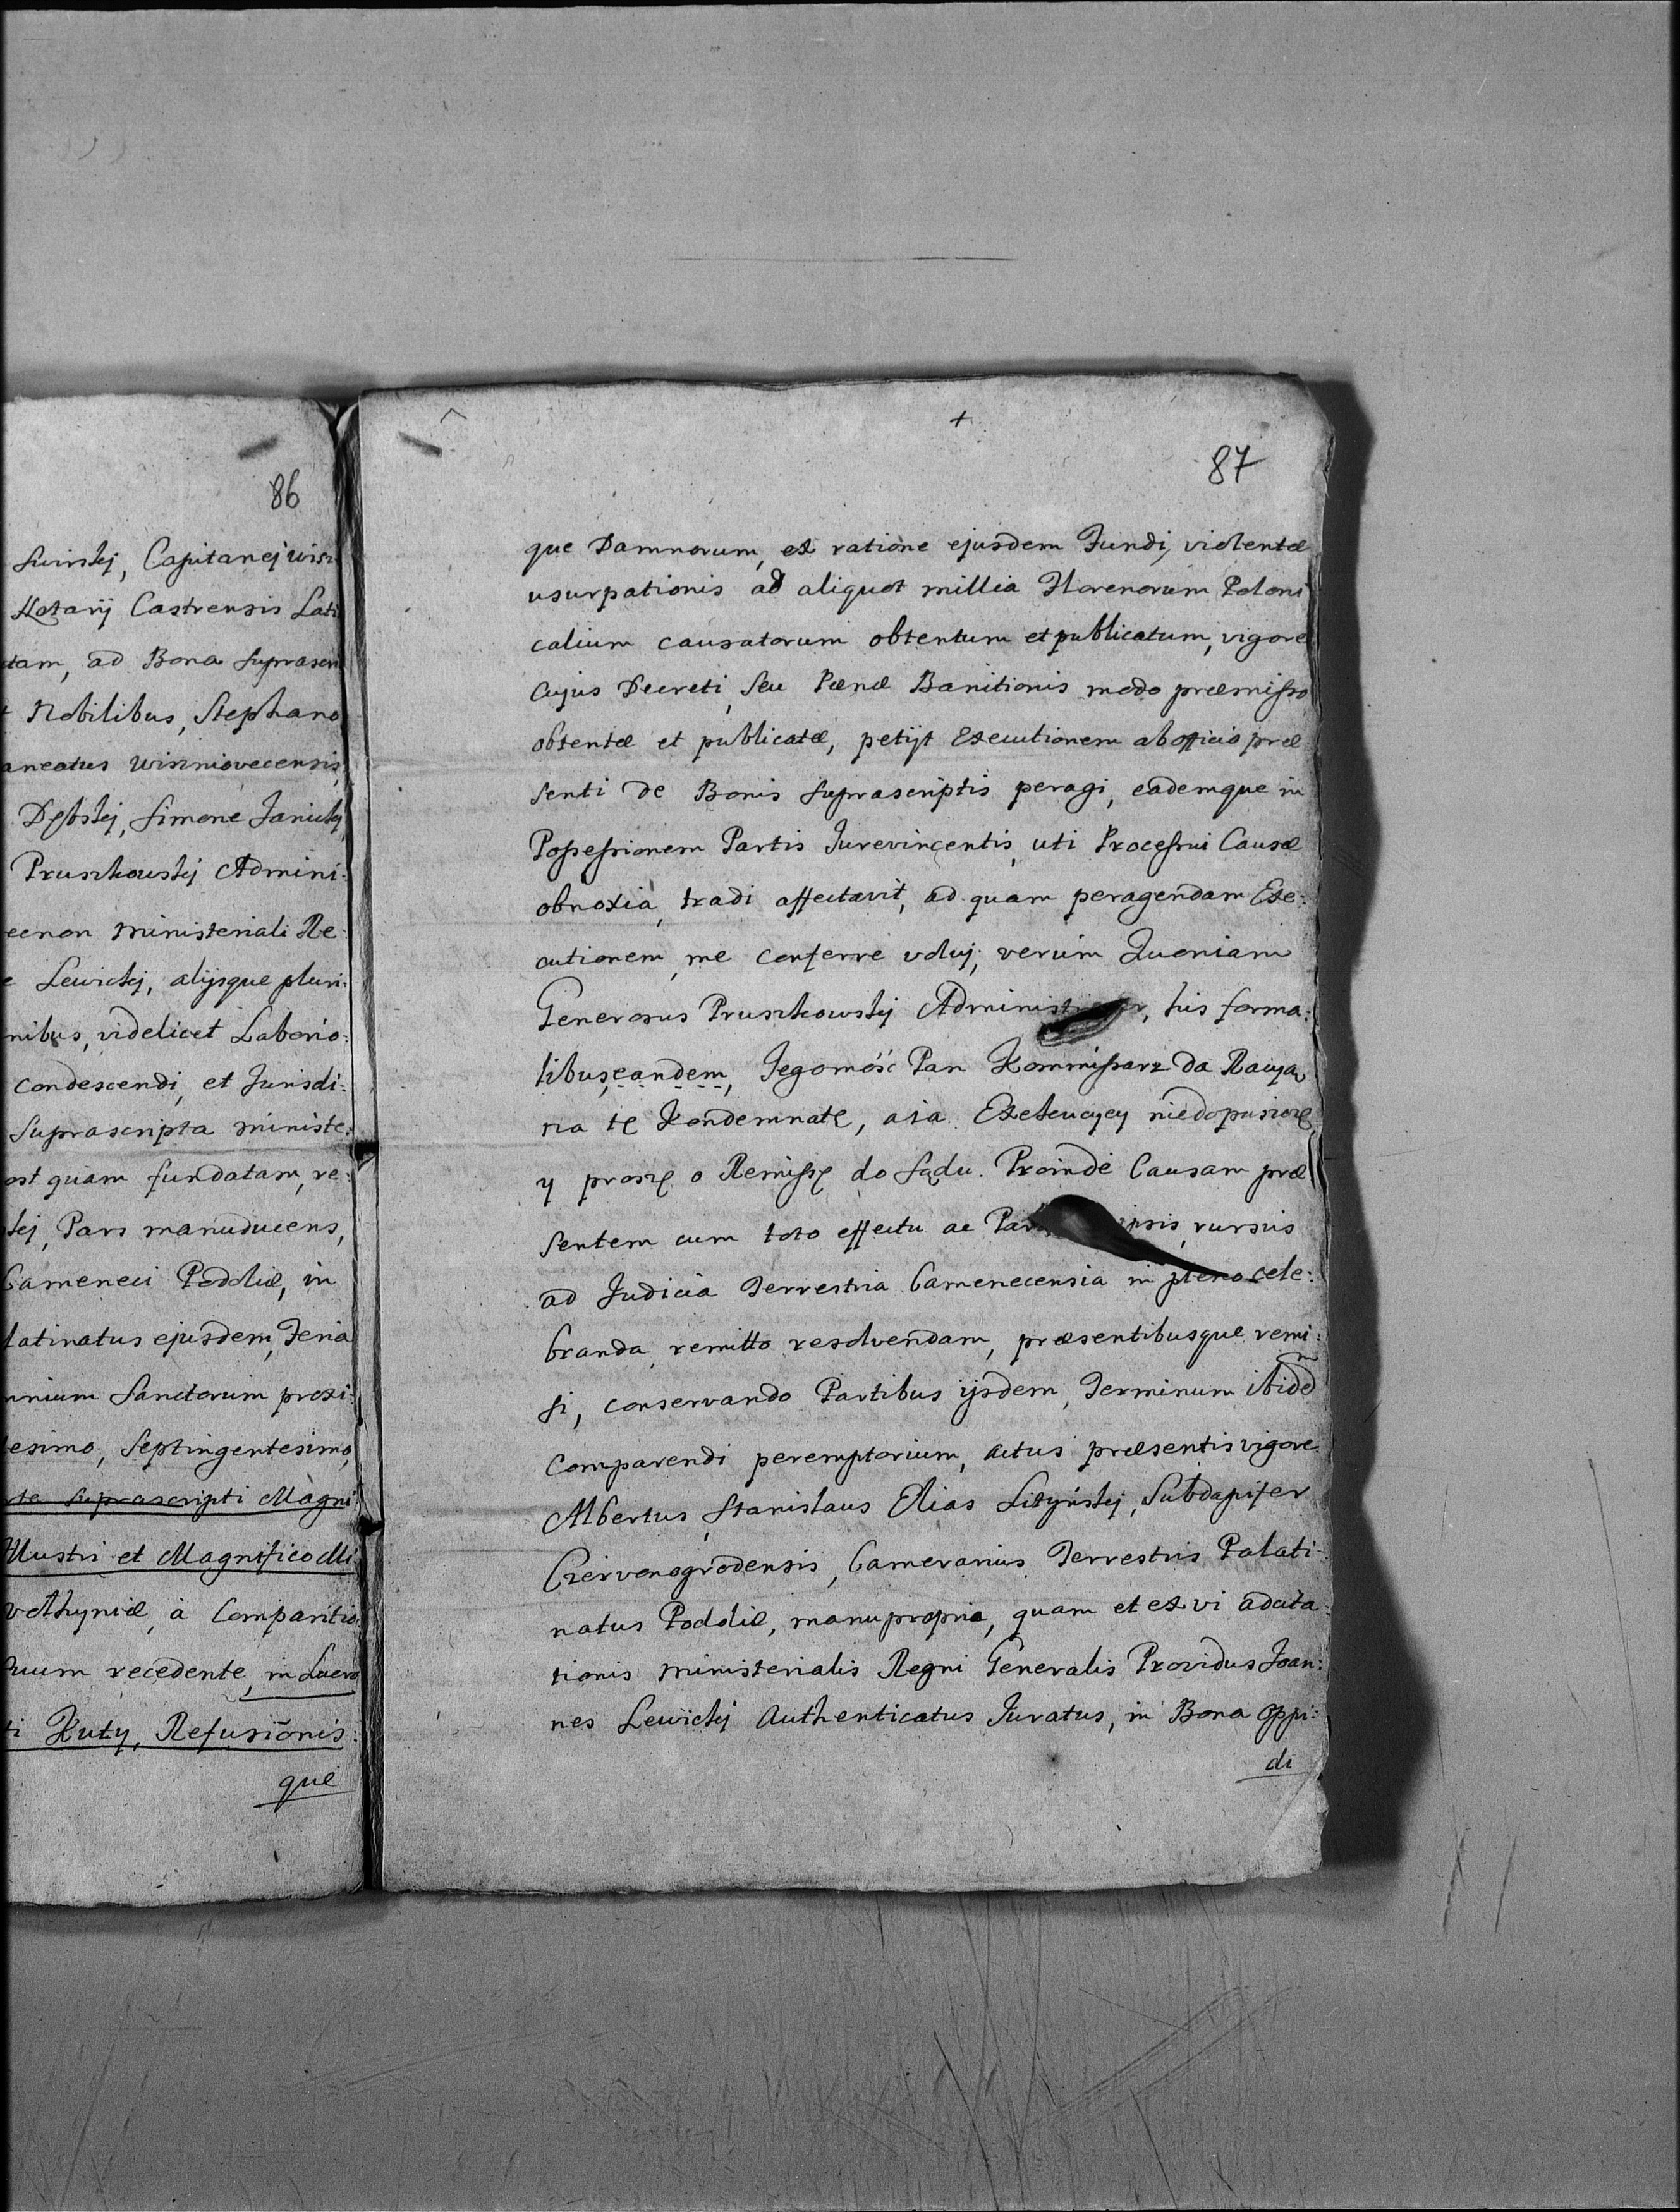 86
Swirskj, Capitanej Wisn
Notarij Castrensis Lati
tam, ad Bona suprascri
t Nobilibus, Stephano
aneatus Wiszniovecensis,
Simone Janicky
Pruszkowskj Admini:
ecnon Ministeriali Re:
e Lewickj, alijsque pluri:
nibus, videlicet Laborio:
condescendi, et Jurisdi:
suprascripta ministe:
ost quam fundatam, re:
kj, Pars manuducens,
Cameneci Podoliæ, in
latinatus ejusdem, Feria
mnium Sanctorum proxi:
lesimo, Septingentesimo,
rte suprascripti Magni:
Illustri et Magnifico Mi
volhyniæ, à Comparitio
tuum recedente, in Lucro
ti Kuty, Refusionis:
que
+
87
que Damnorum, ex ratione ejusdem Fundi, violentæ
usurpationis ad aliquot millia Florenorum Poloni
calium causatorum obtentum et publicatum, vigore
Cujus Decreti, seu Pænæ Banitionis modo præmisso
obtentæ et publicatæ, petijt Executionem ab officio præ
senti de Bonis suprascriptis peragi, eademque in
Possessionem Partis Jurevincentis, uti Processui Causæ
obnoxia, tradi affectavit, ad quam peragendam Exe:
cutionem, me conferre voluj, verùm Quoniam
Generosus Pruszkowskj Administrator, his forma:
libus, eandem, Jegomość Pan Kommissarz da Racyą
na tę Kondemnatę, a ia Exekucyey niedopuszczę,
y proszę o Remissę do Sądu. Proinde Causam præ
sentem cum toto effectu ac ipsis, rursùs
ad Judicia Terrestria Camenecensia in pleno cele:
branda, remitto resolvendam, præsentibusque remi:
si, conservando Partibus ijsdem, Terminum ibidem
comparendi peremptorium, actus præsentis vigore.
Albertus Stanislaus Elias Lityńskj, Subdapifer
Czervonogrodensis, Camerarius Terrestris Palati-
natus Podoliæ, manu propria, quam et ex vi adcita:
tionis Ministerialis Regni Generalis Providus Joan:
nes Lewickj Authenticatus Juratus, in Bona Oppi:
di